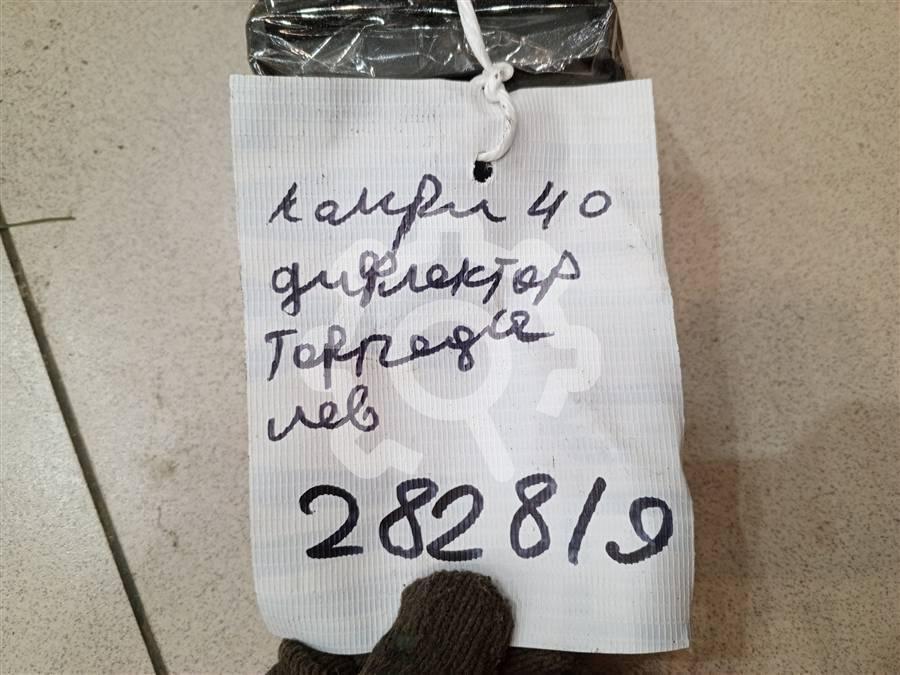 камри 40
дифлектор
Торпеды
лев
28281/9